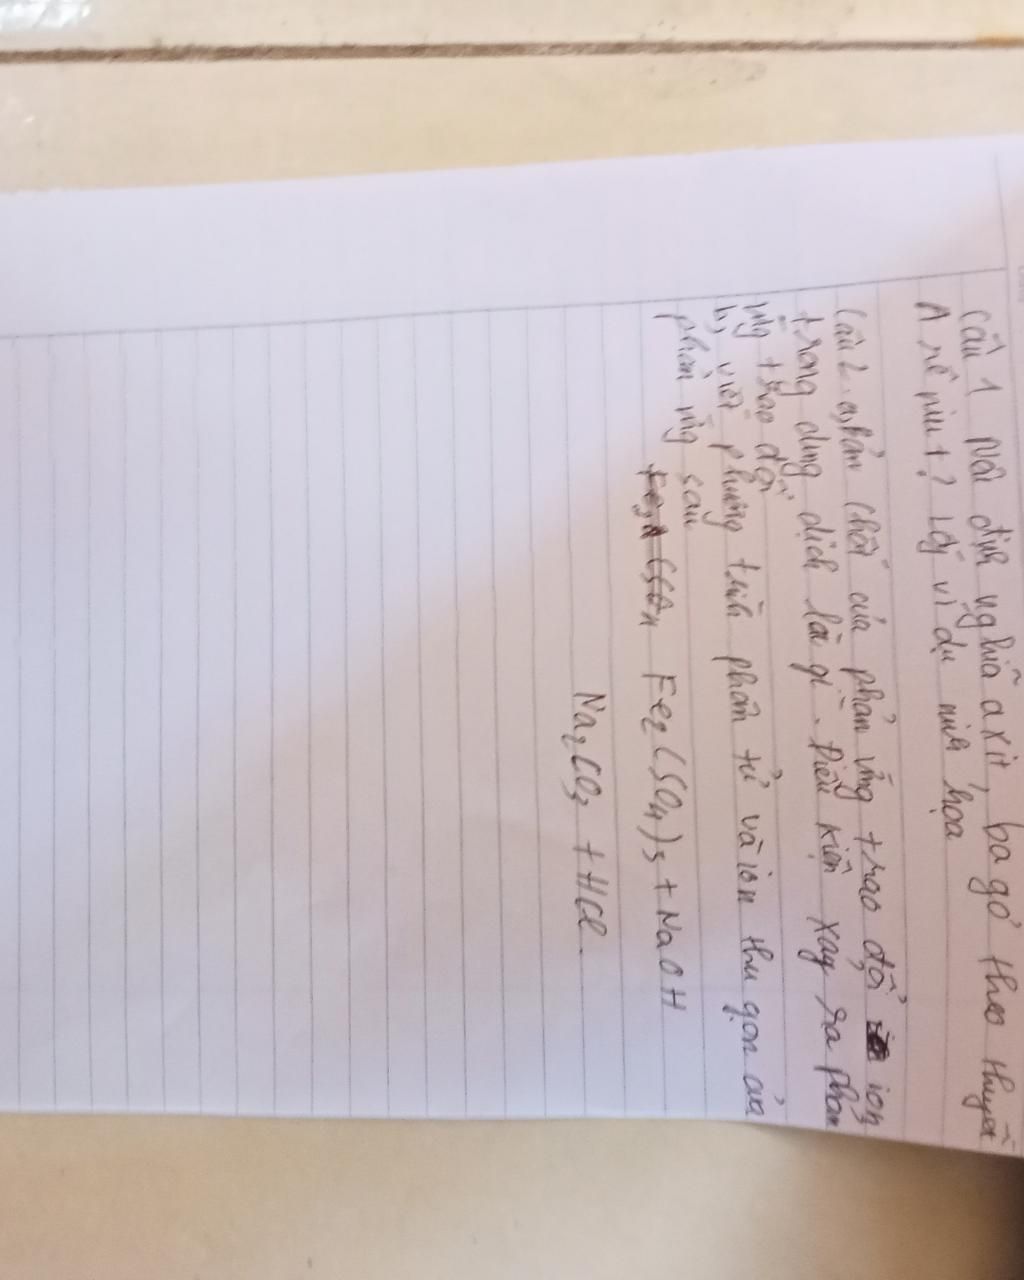 Câu 1 Nêu định nghĩa axit, bazơ theo thuyết
A rê niut? Lấy ví dụ minh họa
Câu 2. a, bản chất của phản ứng trao đổi ion
trong dung dịch là gì. Điều kiện xảy ra phản
ứng trao đổi
b, viết phương trình phân tử và ion thu gọn của
phản ứng sau
Fe2(SO4)3 + NaOH
Na2CO3 + HCl.